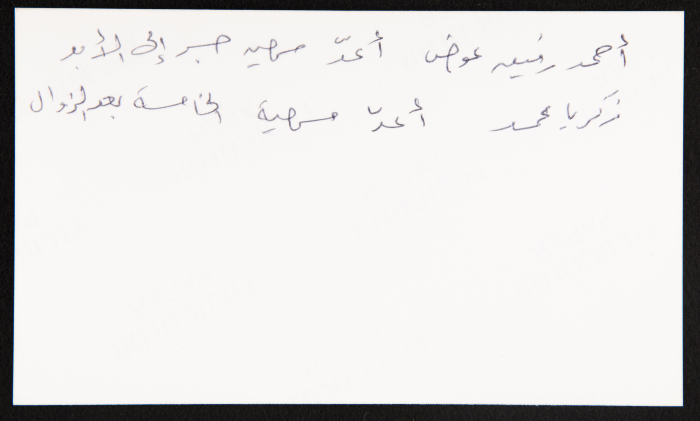 أحمد رفيق عوض أعدّ مسرحية حسر إلى الأبد
زكريا محمد أعدّ مسرحية الخامسة بعد الزوال